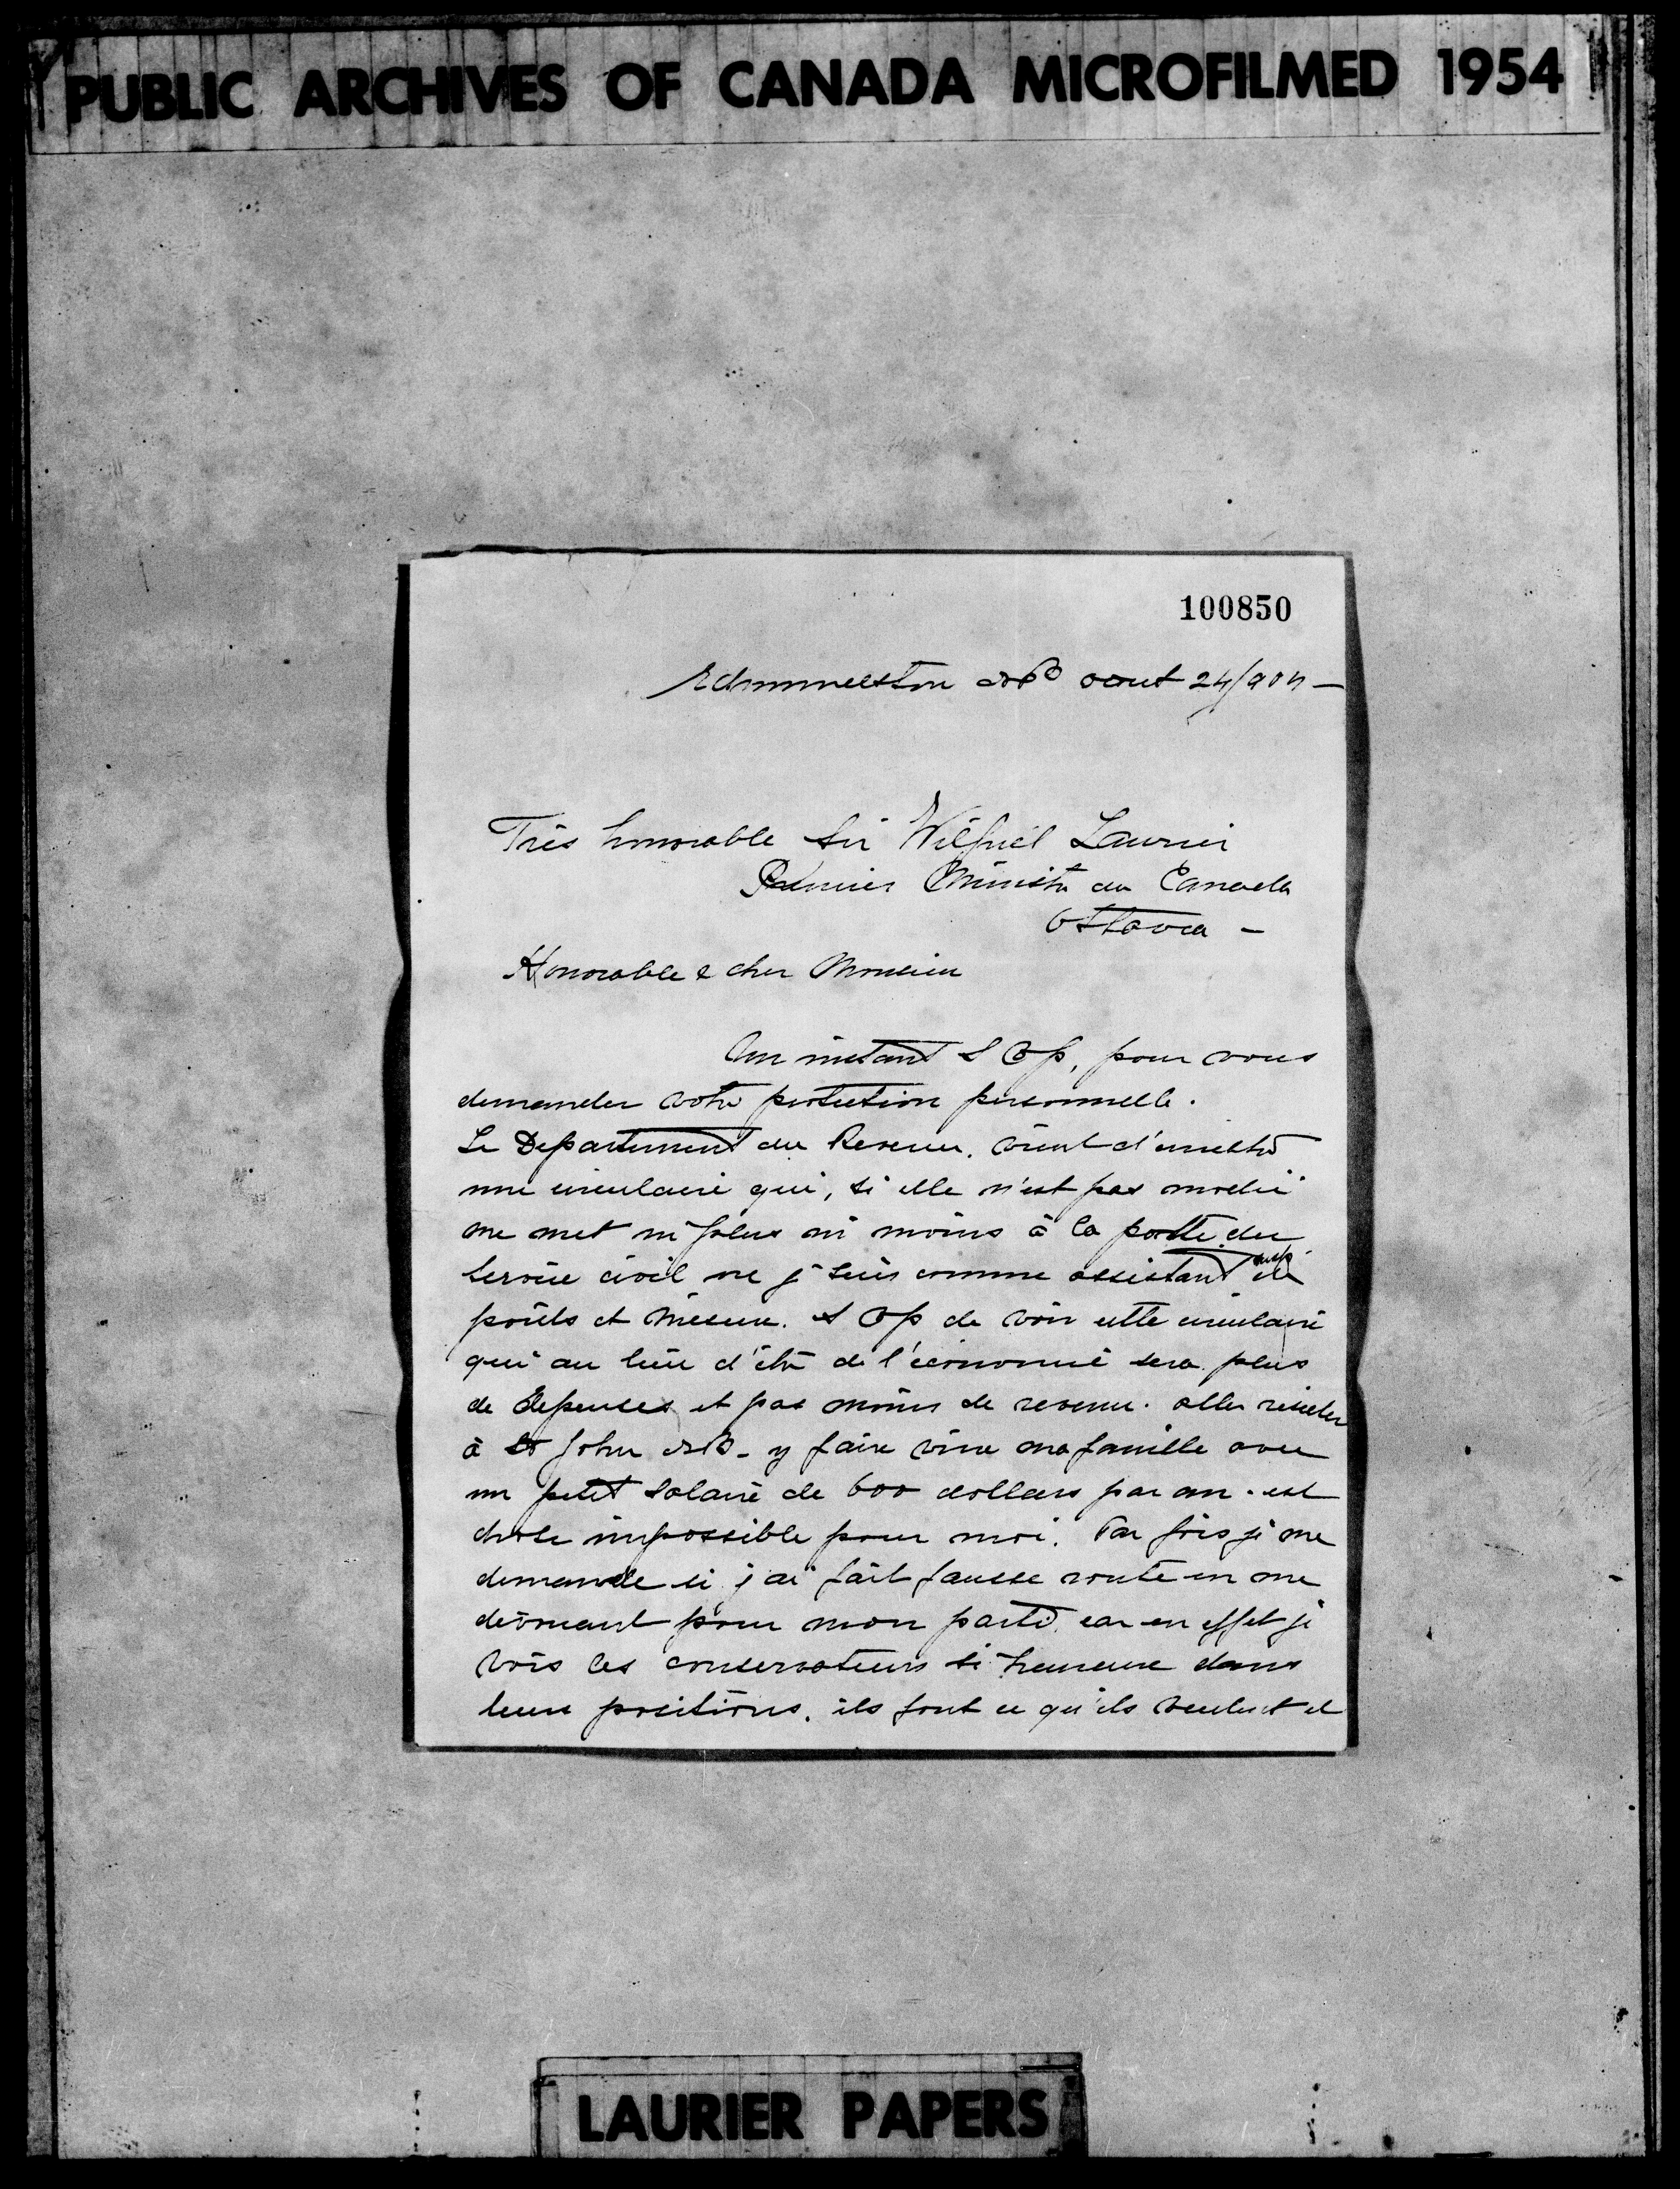 PUBLIC ARCHIVES OF CANADA MICROFILMED 1954
100850
Edmundston NB aout 24/904 -
Très honorable Sir Wilfrid Laurier
Premier Ministre du Canada
Ottawa -
Honorable & cher Monsieur
Un instant S V p, pour vous
demander votre protection personnelle.
Le Departement du Revenu. vient d'emettre
une circulaire qui, si elle n'est pas modié
me met ni plus ni moins à la porte du
Service civil, je suis comme assistant insp. de
poids et mesure. S V p de voir cette circulaire
qui au lieu d'être de l'économie sera plus
de depenses et pas moins de revenu. aller resider
à St John NB - y faire vivre ma famille avec
un petit salaire de 600 dollars par an. est
chose impossible pour moi. Par fois je me
demande si j'ai fait fausse route en me
dévouant pour mon parti. car en effet je
vois les conservateurs si heureux dans
leurs positions. ils font ce qu'ils veulent et
LAURIER PAPERS